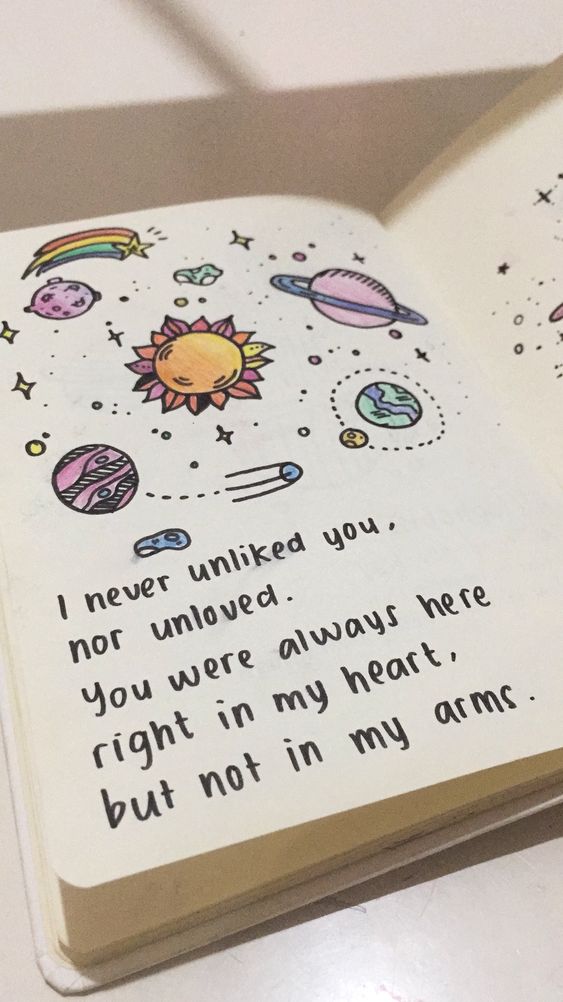 I never unliked you,
nor unloved.
You were always here
right in my heart,
but not in my arms.